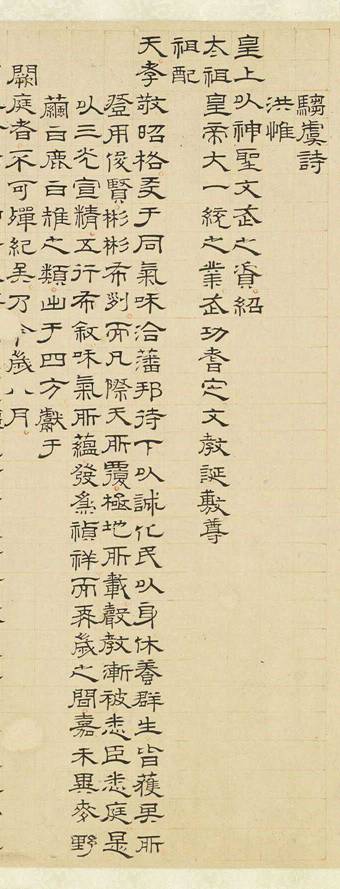 騶虞詩
洪惟
皇上以神聖文武之資紹
太祖皇帝大一統之業武功耆定文教誕敷尊
祖配
天孝敬昭格爰于同氣咊洽藩邦待下以誠化民以身休養群生皆獲其所
登用俊賢彬彬布列而凡際天所覆極地所載聲教漸被悉臣悉庭是
以三光宣精五行布敘咊氣所蘊發為禎祥而再歲之間嘉禾異麥野
繭白鹿白雉之類出于四方獻于
闕庭者不可殫紀其乃今歲八月